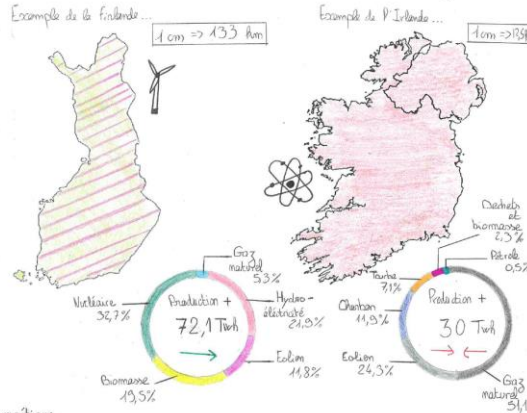 Exemple de la Finlande...
1 cm => 133 km
Exemple de l'Irlande...
1cm =>
Gaz
naturel
5,3%
Hydro-
électricité
21,9%
Eolien
11,8%
Biomasse
19,5%
Nucléaire
32,7%
Production +
72,1 Twh
Déchets et
biomasse
2,3%
Pétrole
0,5%
Tourbe
7,1%
Charbon
11,9%
Eolien
24,3%
Production +
30 Twh
Gaz
naturel